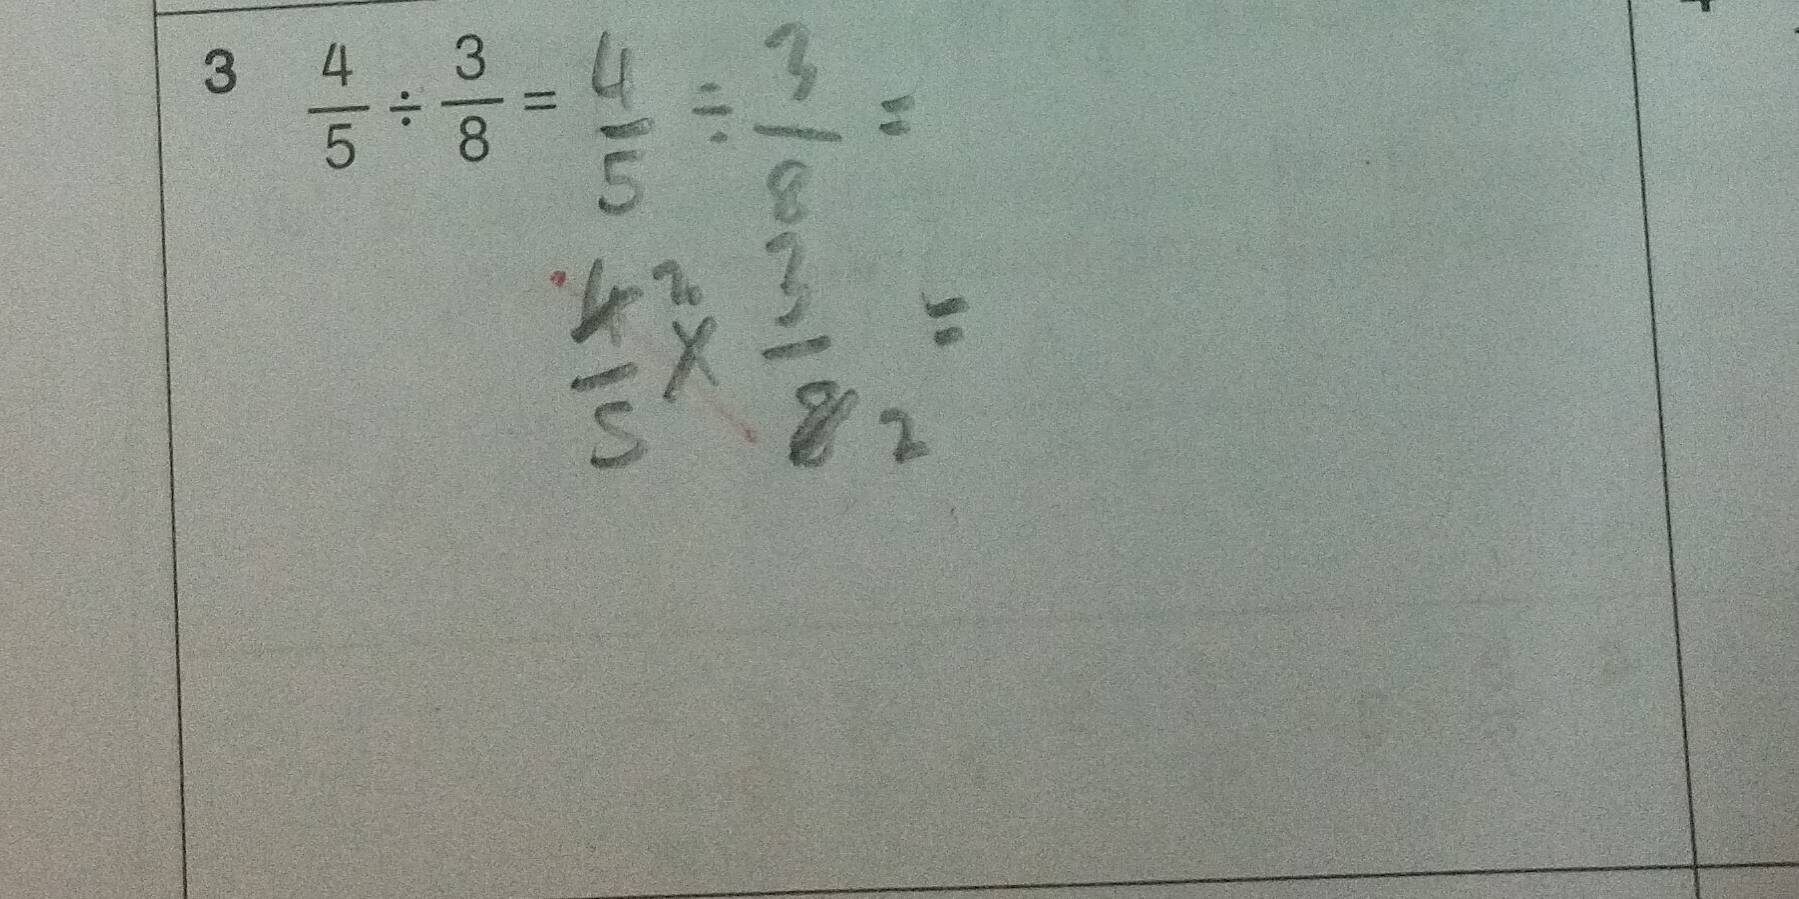 3 4/5 ÷ 3/8 = 4/5 ÷ 3/8 =
4 2/5 × 3/8 2 =